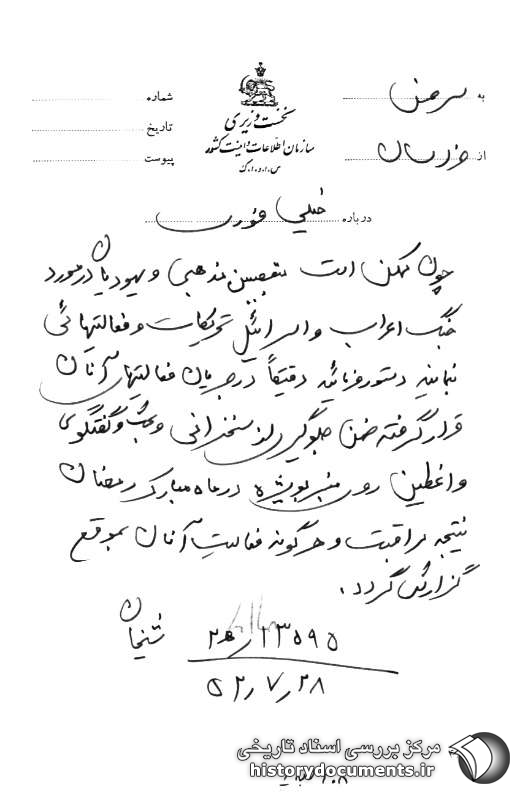 نخست وزیری
سازمان اطلاعات و امنیت کشور
س.ا.و.ا.ک
به
از
شماره
تاریخ
پیوست
درباره خیلی فوری
چون ممکن است متعصبین مذهبی و یهودیان در مورد
جنگ اعراب و اسرائیل تحریکات و فعالیتهائی
بنمایند دستور فرمائید دقیقاً در جریان فعالیتهای آنان
قرار گرفته ضمن جلوگیری از سخنرانی و بحث و گفتگوی
واعظین روی منبر بویژه در ماه مبارک رمضان
نتیجه مراقبت و هرگونه فعالیت آنان بموقع
گزارش گردد.
۱۳۵۹۵
۵۲٫۷٫۲۸
مرکز بررسی اسناد تاریخی
historydocuments.ir